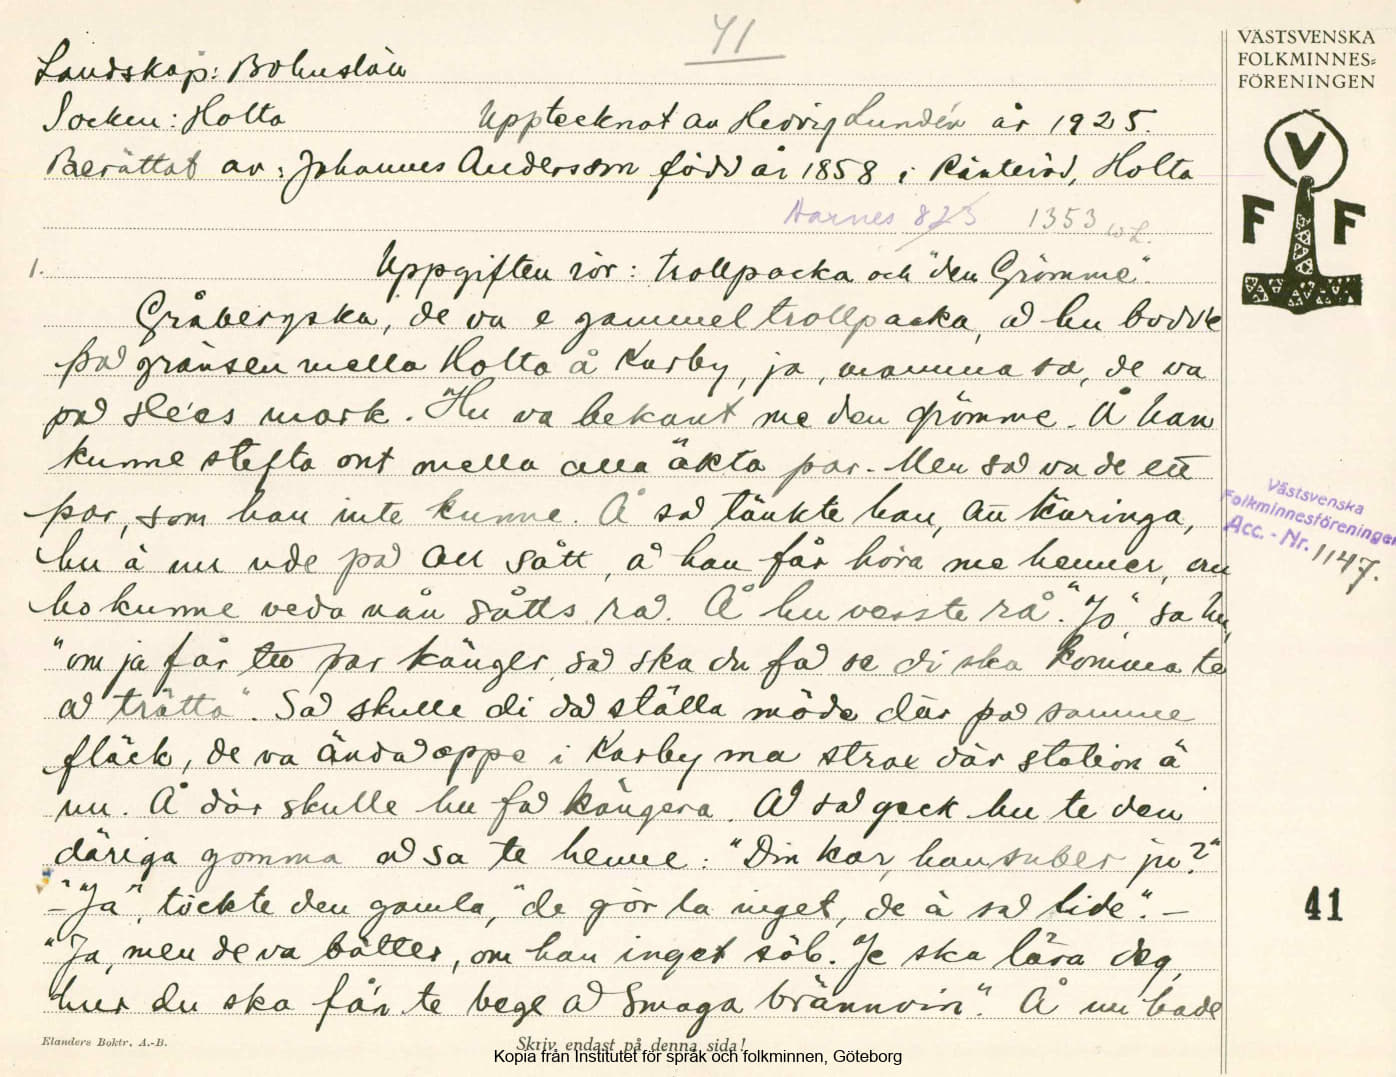 41
VÄSTSVENSKA
FOLKMINNES=
FÖRENINGEN
V
F F
Landskap: Bohuslän
Socken: Holta Upptecknat av Hedvig Lundén år 1925.
Berättat av: Johannes Andersson född år 1858 i Ränteröd, Holta
Aarnes 823 1353
1. Uppgiften rör: trollpacka och "den Grömme".
Gråbergska, de va e gammel trollpacka, å hu bodde
på gränsen mella Holta å Karby, ja, mamma sa, de va
på mark. Hu va bekant me den grömme. Å han
kunne stefta ont mella alla äkta par. Men så va de ett
par, som han inte kunne. Å så tänkte han, att käringa,
hu ä nu ude på all sått, å han får höra me henner, au
ho kunne veda nån såtts rå. Å hu vesste rå. "Jo", sa hu,
"om ja får tu par känger, så ska du få se di ska komma te
å trätta". Så skulle di då ställa möde där på samme
fläck, de va ändå oppe i Karby ma strax där station ä
nu. Å där skulle hu få kängera. Å så geck hu te den
däriga gomma å sa te henne: "Din kar, han suber ju?"
- "Ja", töckte den gamla, "de gör la inget, de ä så lide". -
"Ja, men de va bätter, om han inget söb. Je ska lära deg,
hur du ska få'n te bege å smaga brännvin". Å nu bade
Västsvenska
Folkminnesföreningen
Acc. - Nr. 1147.
41
Elanders Boktr. A.-B.
Skriv endast på denna sida!
Kopia från Institutet för språk och folkminnen, Göteborg